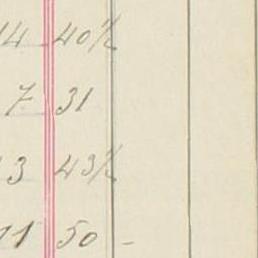 14 40½
7 31
3 43½
11 50 -